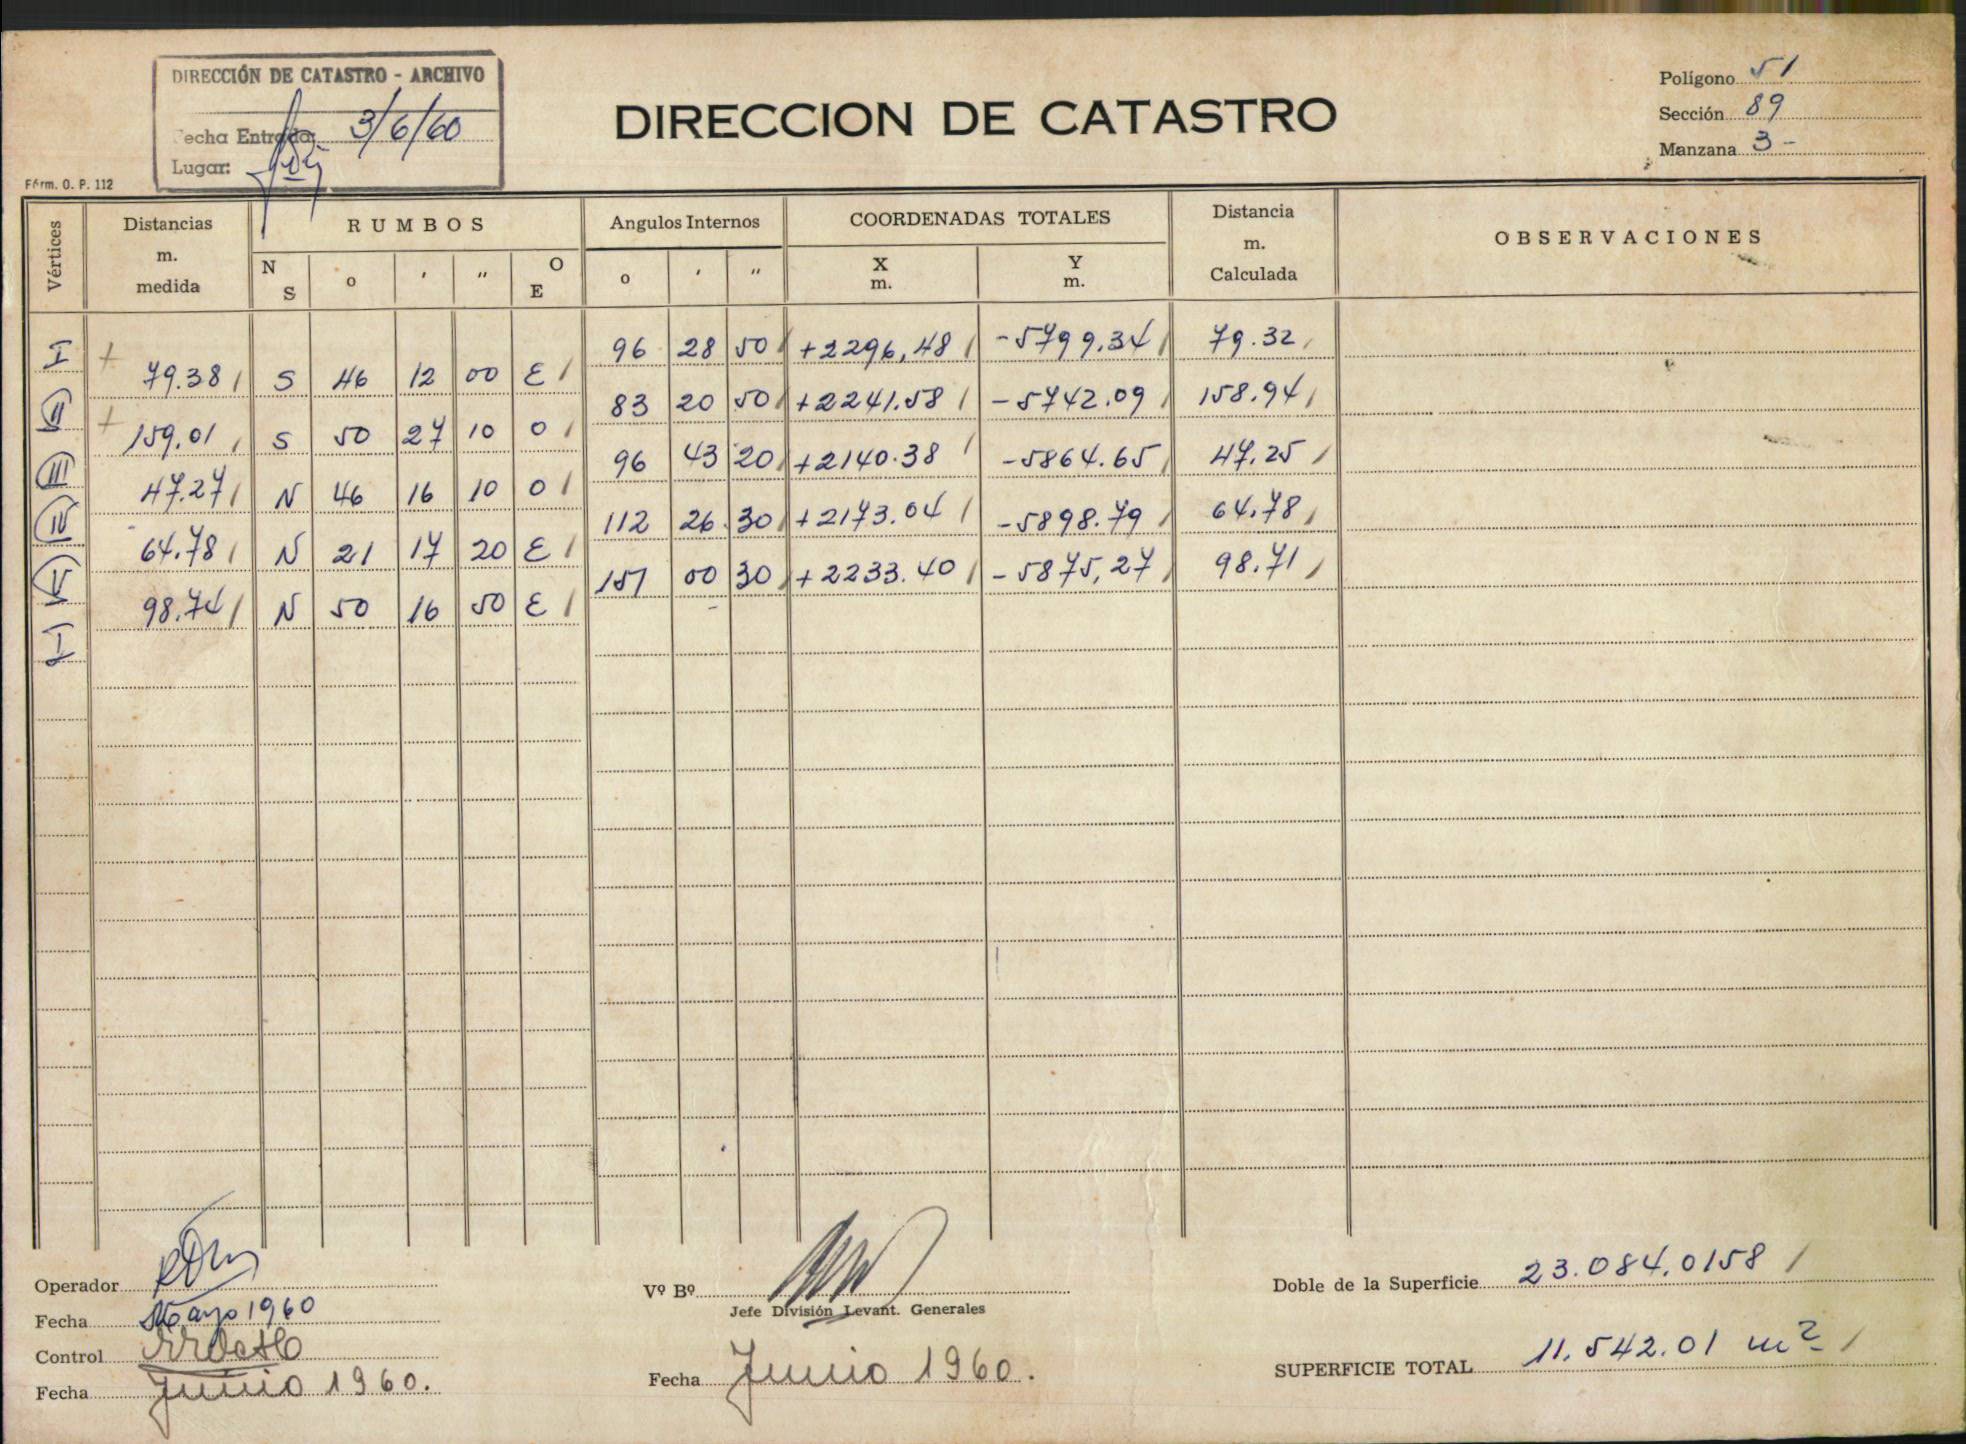 DIRECCIÓN DE CATASTRO - ARCHIVO
Fecha Entrada: 3/6/60
Lugar:
DIRECCION DE CATASTRO
Polígono 51
Sección 89
Manzana 3-
Fórm. O. P. 112
Vértices
Distancias m. medida
RUMBOS
N S o ' " O E
Angulos Internos
o ' "
COORDENADAS TOTALES
X m. Y m.
Distancia m. Calculada
OBSERVACIONES
I 96 28 50 +2296,48 -5799.34 79.32
79.38 S 46 12 00 E
II 83 20 50 +2241.58 -5742.09 158.94
159.01 S 50 27 10 O
III 96 43 20 +2140.38 -5864.65 47.25
47.27 N 46 16 10 O
IV 112 26 30 +2173.04 -5898.79 64.78
64.78 N 21 17 20 E
V 151 00 30 +2233.40 -5875,27 98.71
98.74 N 50 16 50 E
I
Operador
Fecha Mayo 1960
Control
Fecha Junio 1960.
Vº Bº
Jefe División Levant. Generales
Fecha Junio 1960.
Doble de la Superficie 23.084,0158
SUPERFICIE TOTAL 11.542.01 m²